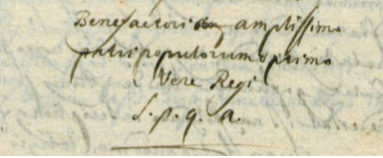 Benefactori amplissimo
patri populorum optimo
Vere Regi
S. p. q. a.